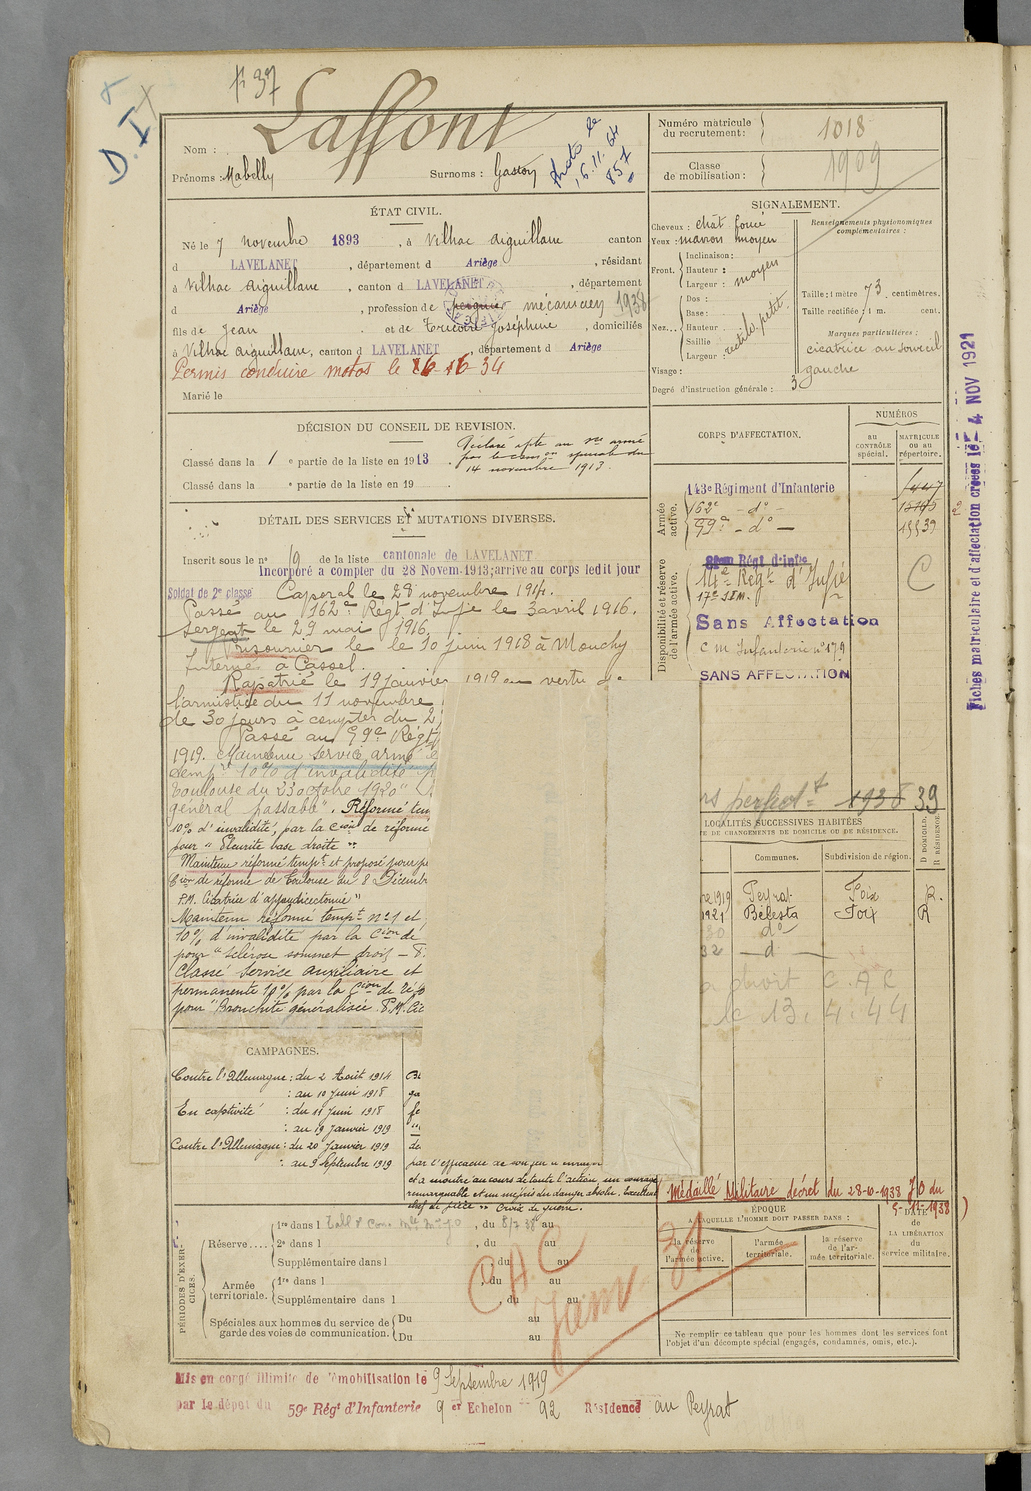 D. I
Laffont
Nom :
Prénoms : Mabelly
Surnoms : Gaston
Photo le
16.11.64
857
Numéro matricule
du recrutement : 1018
Classe
de mobilisation : 1909
ÉTAT CIVIL.
Né le 7 novembre 1893, à Vilhac Aiguillane canton
d LAVELANET, département d Ariège, résidant
à Vilhac Aiguillane, canton d LAVELANET, département
d Ariège, profession de peignier mécanicien 1938
fils de Jean et de Tricoire Joséphine, domiciliés
à Vilhac Aiguillane, canton d LAVELANET, département d Ariège
Permis conduire motos le 16-16-34
Marié le
SIGNALEMENT.
Cheveux : chât foncé
Yeux : marron moyen
Front. Inclinaison :
Hauteur :
Largeur : moyen
Nez... Dos :
Base :
Hauteur
Saillie
Largeur : rectil. petit
Visage :
Degré d'instruction générale : 3
Renseignements physionomiques
complémentaires :
Taille : 1 mètre 73 centimètres.
Taille rectifiée : 1 m. cent.
Marques particulières :
cicatrice au sourcil
gauche
DÉCISION DU CONSEIL DE REVISION.
Classé dans la 1e partie de la liste en 1913
Classé dans la e partie de la liste en 19
Déclaré apte au sce armé
par la com on spéciale du
14 novembre 1913.
DÉTAIL DES SERVICES ET MUTATIONS DIVERSES.
Inscrit sous le no 19 de la liste cantonale de LAVELANET
Incorporé a compter du 28 Novem. 1913; arrivé au corps ledit jour
Soldat de 2e classe Caporal le 28 novembre 1914.
Passé au 162e Régt d'Infie le 3 avril 1916.
Sergent le 29 mai 1916
Prisonnier le le 10 juin 1918 à Mouchy
Interné à Cassel.
Rapatrié le 19 janvier 1919 en vertu de
l'armistice du 11 novembre
de 30 jours à compter du 2
Passé au 99e Régt
1919. Maintenu service armé
tempre 10% d'invalidité
Toulouse du 23 octobre 1920 "
général passable". Réformé tem
10% d'invalidité, par la Cion de réforme
pour "Pleurite base droite"
Maintenu réformé tempt et proposé pour pe
Cion de réforme de Toulouse du 8 Décemb
P.M. Cicatrice d'appendicectomie"
Maintenu réformé tempt no 1 et
10% d'invalidité par la Cion de
pour "sclérose sommet droit –
Classé service auxiliaire et
permanente 10% par la Cion de réfo
pour "Bronchite généralisée P.M. Cic
CORPS D'AFFECTATION.
NUMÉROS
au
CONTRÔLE
spécial.
MATRICULE
ou au
répertoire.
Armée
active.
143e Régiment d'Infanterie
162e - do -
99e - do -
15539
Disponibilité et réserve
de l'armée active.
Régt d'Infie
14e Regt d'Infie
17e S.I.M.
C
Sans Affectation
C M Infanterie no 179
SANS AFFECTATION
Fiches matriculaire et d'affectation créées le 4 NOV 1921
1938 39
LOCALITÉS SUCCESSIVES HABITÉES
DE CHANGEMENTS DE DOMICILE OU DE RÉSIDENCE.
Communes.
Subdivision de région.
D DOMICILE.
R RÉSIDENCE.
re 1919 Peyrat Foix R.
1921 Bélesta Foix R
30 do
32 — d —
a droit C.A.C
le 13.4.44
CAMPAGNES.
Contre l'Allemagne : du 2 Août 1914
: au 10 Juin 1918
En captivité : du 11 Juin 1918
: au 19 Janvier 1919
Contre l'Allemagne : du 20 Janvier 1919
: au 9 Septembre 1919
par l'efficacité de son feu a enrayé
et a montré au cours de toute l'action, un courage
remarquable et un mépris du danger absolu. Excellent
chef de pièce " Croix de guerre.
Médaillé Militaire décret du 28-10-1938 JO du
5-11-1938)
PÉRIODES D'EXER-
CICES.
Réserve....
1re dans l , du 8/2 38 au
2e dans l , du au
Supplémentaire dans l , du au
Armée
territoriale.
1re dans l , du au
Supplémentaire dans l , du au
Spéciales aux hommes du service de
garde des voies de communication.
Du au
Du au
CAC
31
ÉPOQUE
A LAQUELLE L'HOMME DOIT PASSER DANS :
la réserve
de
l'armée active.
l'armée
territoriale.
la réserve
de l'ar-
mée territoriale.
DATE
de
LA LIBÉRATION
du
service militaire.
Ne remplir ce tableau que pour les hommes dont les services font
l'objet d'un décompte spécial (engagés, condamnés, omis, etc.).
Mis en congé illimité de démobilisation le 9 Septembre 1919
par le dépôt du 59e Régt d'Infanterie 9 er Echelon no 92 Résidence au Peyrat